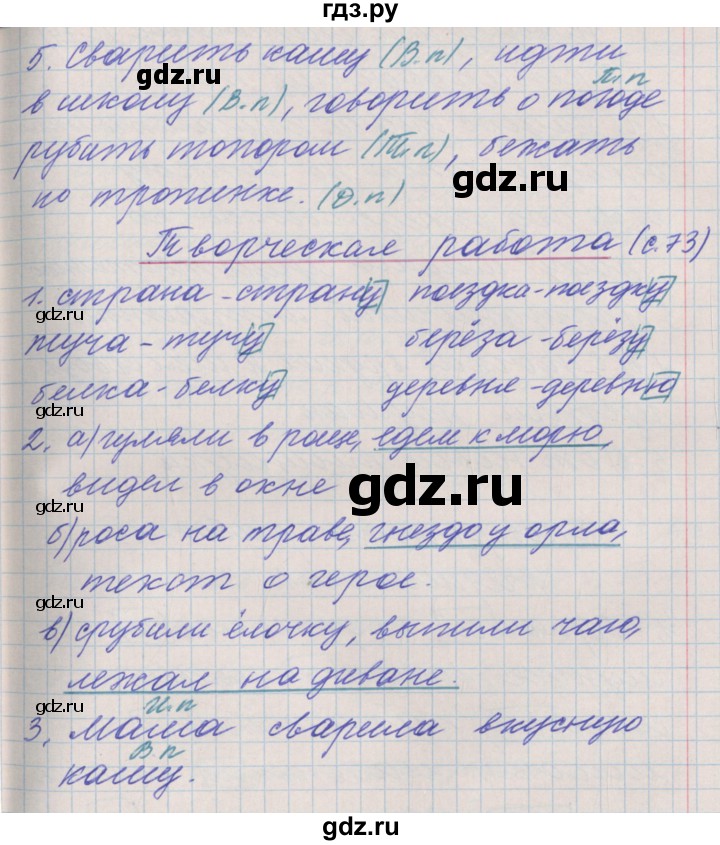 гдз.ру
5. Сварить кашу (В.п), идти
П.п
в школу (В.п), говорить о погоде
рубить топором (Т.п), бежать
по тропинке. (Д.п)
Творческая работа (с.73)
1. страна - страну поездка - поездку
туча - тучу берёза - берёзу
белка - белку деревня - деревню
2. а) гуляли в роще, едем к морю,
видел в окне
б) роса на траве, гнездо у орла,
текст о герое.
в) срубили ёлочку, выпили чаю,
лежал на диване.
И.п
3. Мама сварила вкусную
В п
кашу.
gdz.ru
gdz.ru
gdz.ru
gdz.ru
gdz.ru
gdz.ru
gdz.ru
gdz.ru
gdz.ru
gdz.ru
gdz.ru
gdz.ru
gdz.ru